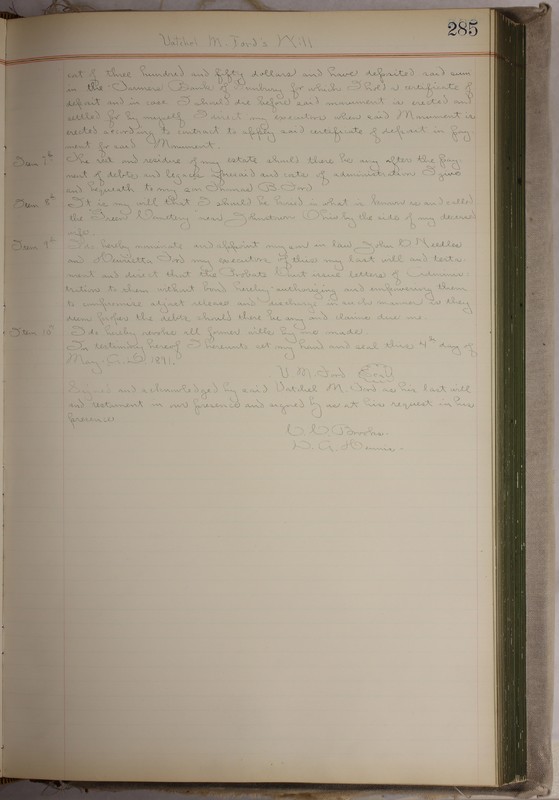 285
Vatchel M. Ford's Will
cost of three hundred and fifty dollars and have deposited said sum
in the Farmers Bank of Sunbury for which I hold a certificate of
deposit and in case I should die before said monument is erected and
settled for by myself I direct my executors when said Monument is
erected according to contract to apply said certificate of deposit in pay-
ment for said Monument.
Item 7th The rest and residue of my estate should there be any after the pay
ment of debts and legacies and costs of administration I give
and bequeath to my son Thomas B. Ford.
Item 8th It is my will that I should be buried in what is known as and called
the Green Cemetery near Johnstown Ohio by the side of my deceased
wife.
Item 9th I do hereby nominate and appoint my son in law John D Needles
and Ford my executors of this my last will and testa-
ment and direct that the Probate Court issue letters of adminis-
tration to them without bond hereby authorizing and empowering them
to compromise adjust release and discharge in such manner as they
deem proper the debts should there be any and claims due me.
Item 10th I do hereby revoke all former wills by me made.
In testimony hereof I hereunto set my hand and seal this 4th day of
May A.D. 1891.
V. M. Ford Seal
Signed and acknowledged by said Vatchel M. Ford as his last will
and testament in our presence and signed by us at his request in his
presence
Brooks.
D. A.